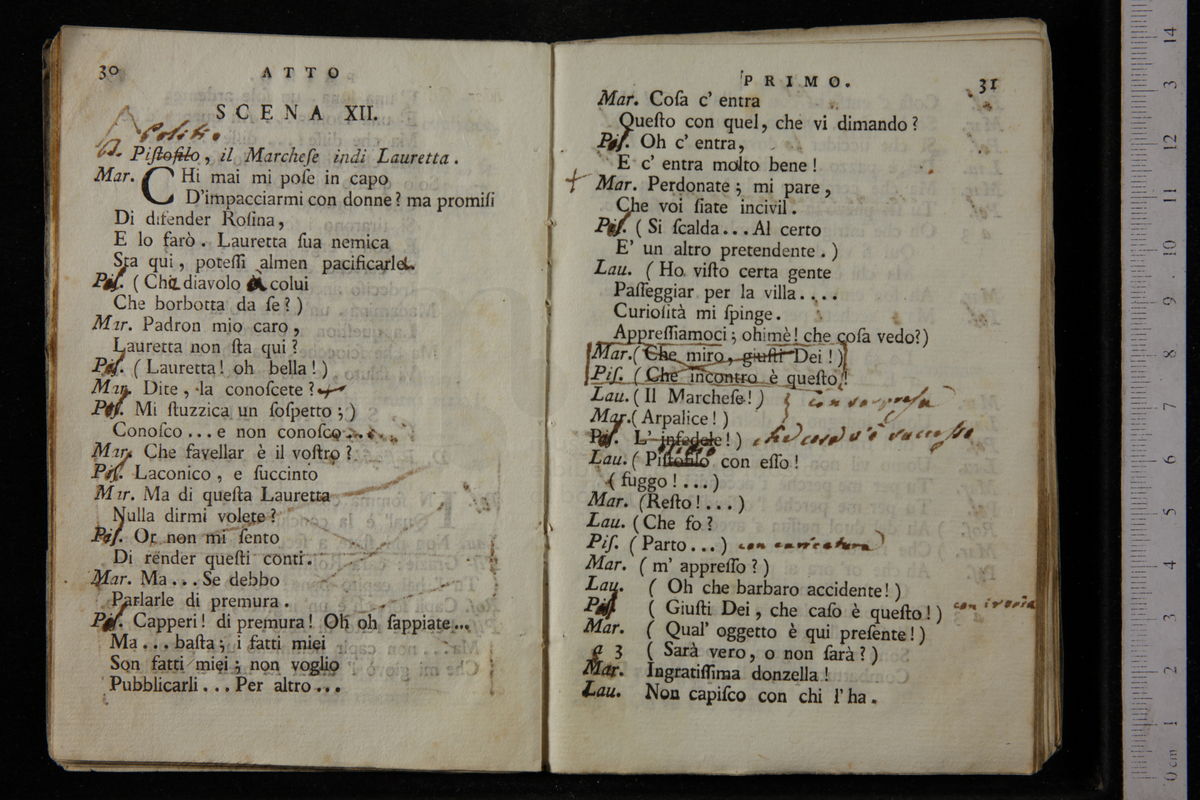 30
ATTO
SCENA XII.
Politi
Piſtofilo, il Marcheſe indi Lauretta.
Mar. CHi mai mi poſe in capo
D'impacciarmi con donne? ma promiſi
Di difender Roſina,
E lo farò. Lauretta ſua nemica
Sta qui, poteſſi almen pacificarle.
Piſ. (Chi diavolo è colui
Che borbotta da ſe?)
Mar. Padron mio caro,
Lauretta non ſta qui?
Piſ. (Lauretta! oh bella!)
Mar. Dite, la conoſcete?
Piſ. Mi ſtuzzica un ſoſpetto;)
Conoſco... e non conoſco...
Mar. Che favellar è il voſtro?
Piſ. Laconico, e ſuccinto
Mar. Ma di queſta Lauretta
Nulla dirmi volete?
Piſ. Or non mi ſento
Di render queſti conti.
Mar. Ma... Se debbo
Parlarle di premura.
Piſ. Capperi! di premura! Oh oh ſappiate...
Ma... baſta; i fatti miei
Son fatti miei; non voglio
Pubblicarli... Per altro...
PRIMO.
31
Mar. Coſa c' entra
Queſto con quel, che vi dimando?
Piſ. Oh c' entra,
E c' entra molto bene!
+ Mar. Perdonate; mi pare,
Che voi ſiate incivil.
Piſ. (Si ſcalda... Al certo
E' un altro pretendente.)
Lau. (Ho viſto certa gente
Paſſeggiar per la villa....
Curioſità mi ſpinge.
Appreſſiamoci; ohimè! che coſa vedo?)
Mar. (Che miro, giuſti Dei!)
Piſ. (Che incontro è queſto!
Lau. (Il Marcheſe!) con sorpresa
Mar. (Arpalice!)
Piſ. L' infedele!) che cosa è successo
Lau. (Piſtofilo con eſſo!
(fuggo!...)
Mar. (Reſto!...)
Lau. (Che fo?
Piſ. (Parto...) con caricatura
Mar. (m' appreſſo?)
Lau. (Oh che barbaro accidente!)
Piſ (Giuſti Dei, che caſo è queſto!) con ironia
Mar. (Qual' oggetto è qui preſente!)
a 3 (Sarà vero, o non ſarà?)
Mar. Ingratiſſima donzella!
Lau. Non capiſco con chi l'ha.
0 cm 1 2 3 4 5 6 7 8 9 10 11 12 13 14